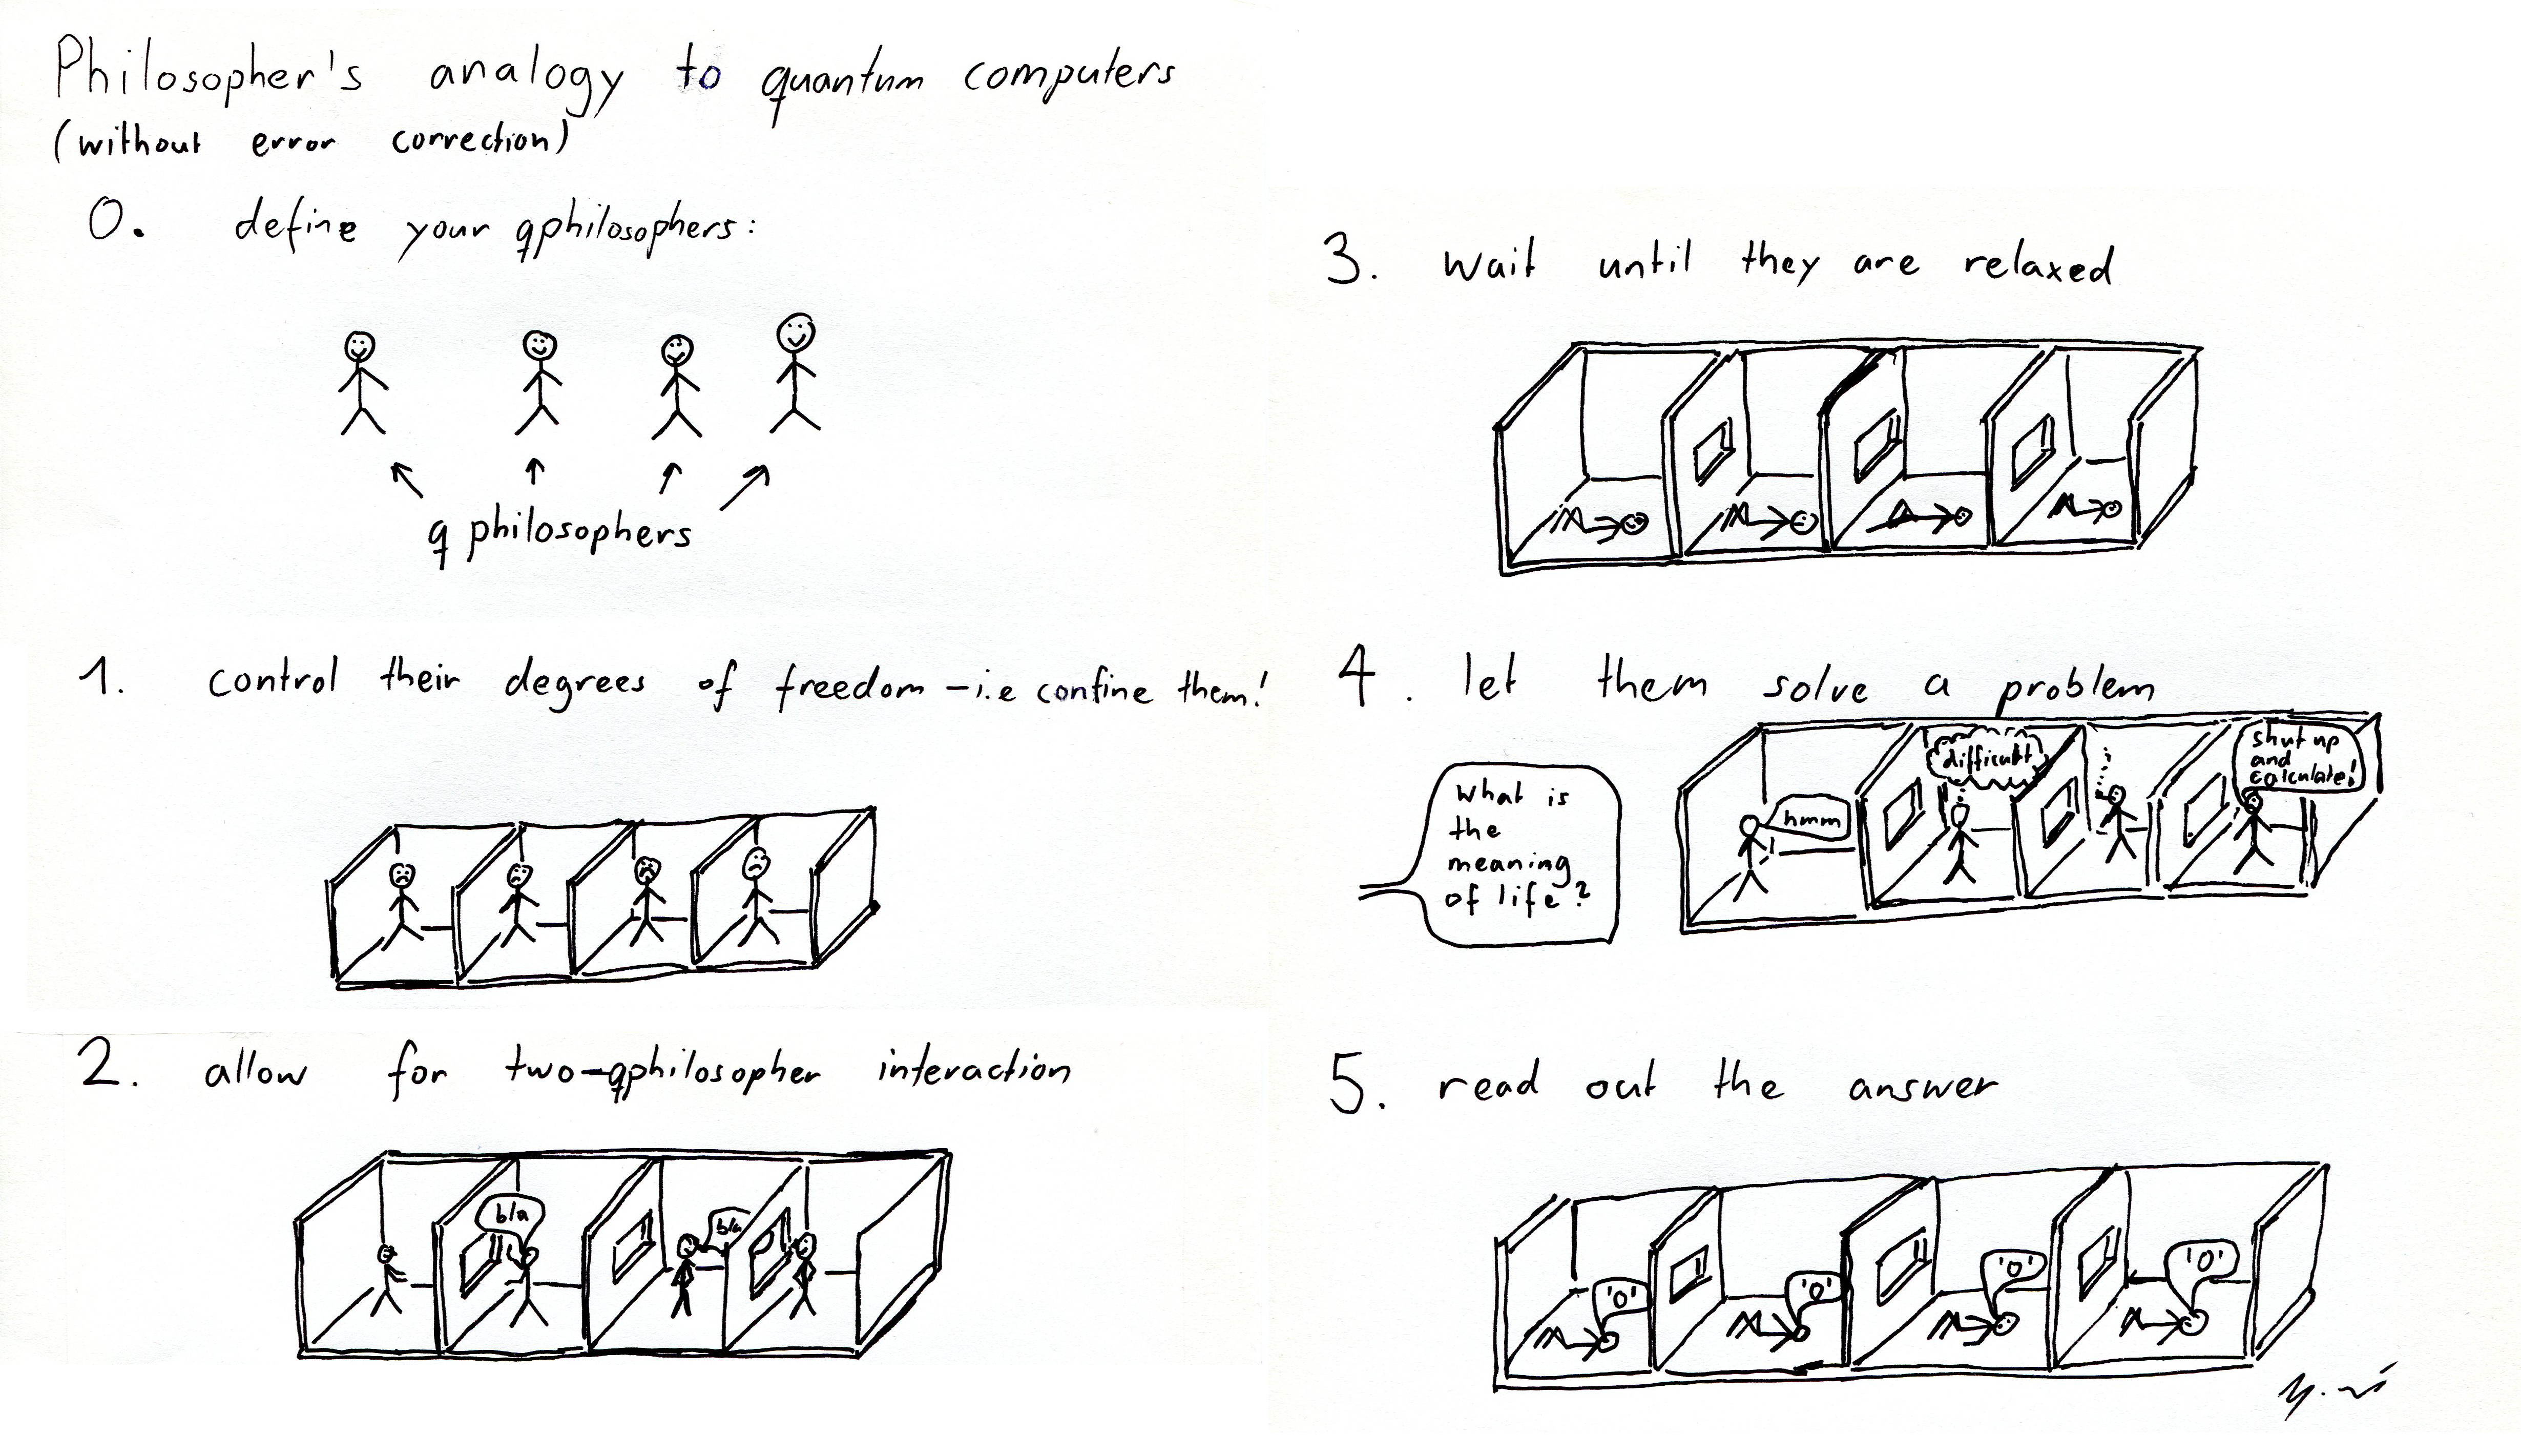 Philosopher's analogy to quantum computers
(without error correction)
0. define your qphilosophers:
q philosophers
1. control their degrees of freedom – i.e confine them!
2. allow for two-qphilosopher interaction
bla
bla
3. wait until they are relaxed
4. let them solve a problem
What is
the
meaning
of life?
hmm
difficult
shut up
and
calculate!
5. read out the answer
'0'
'0'
'0'
'0'